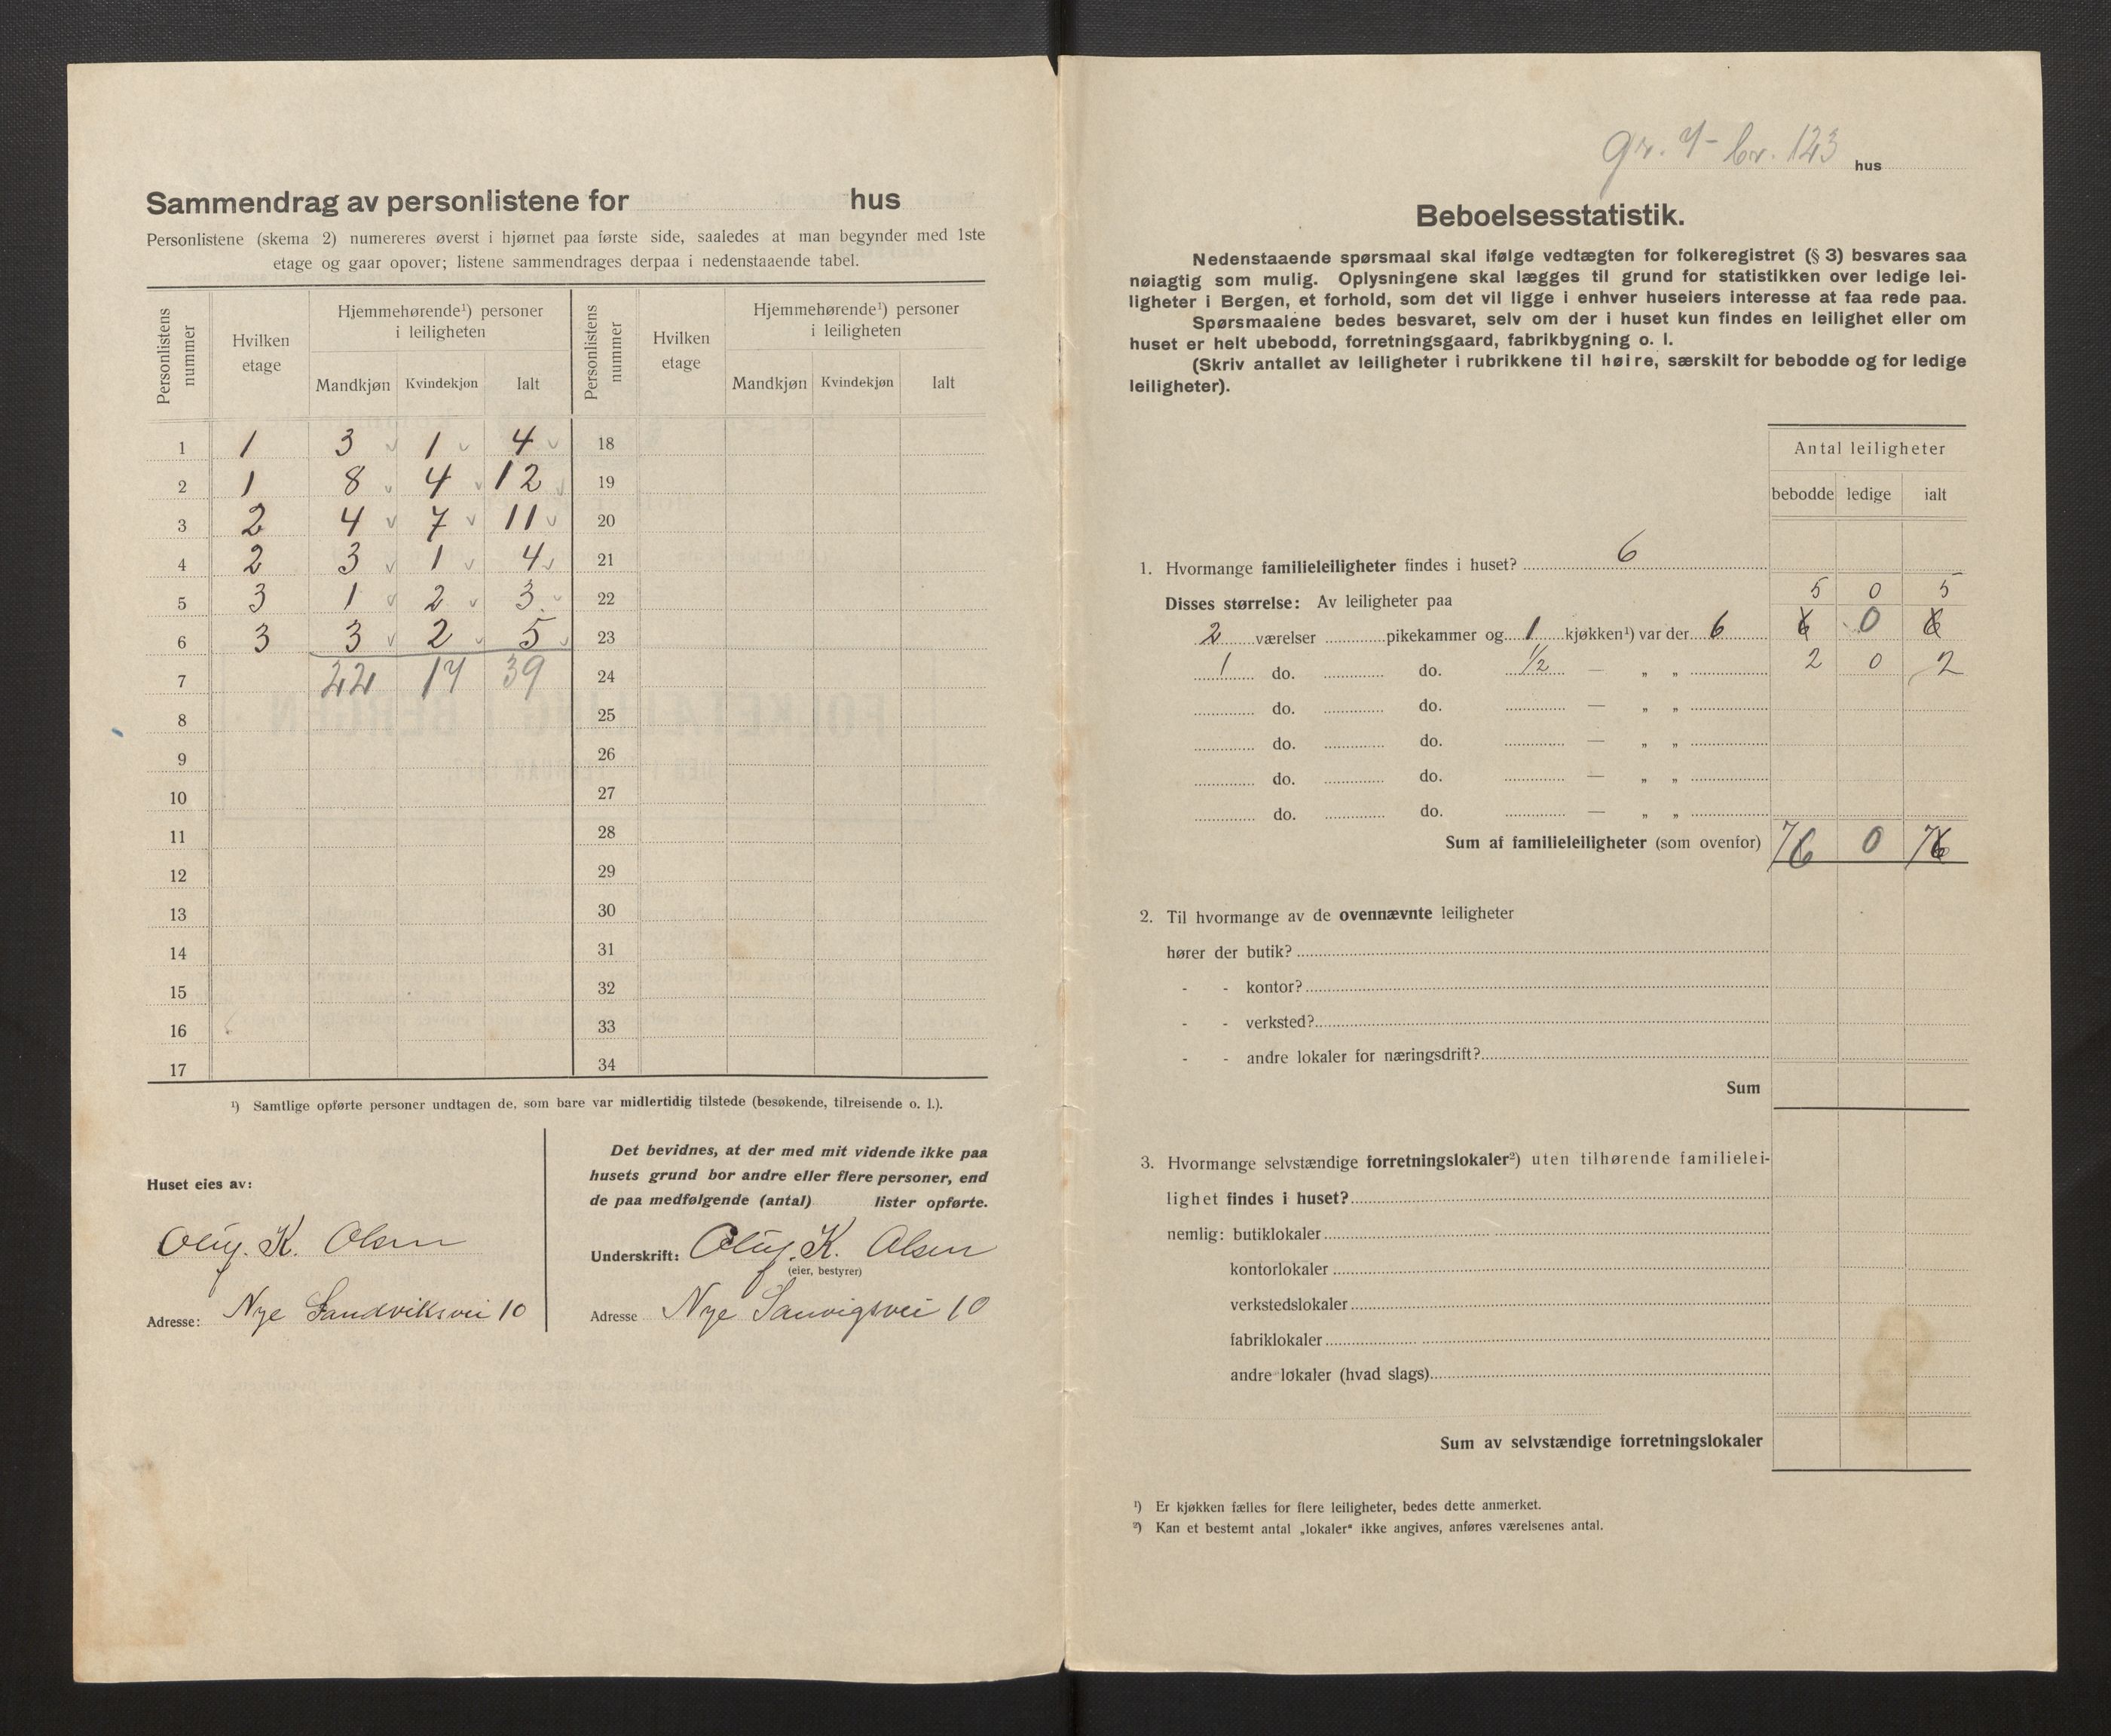 Sammendrag av personlistene for hus
Personlistene (skema 2) numereres øverst i hjørnet paa første side, saaledes at man begynder med 1ste
etage og gaar opover; listene sammendrages derpaa i nedenstaaende tabel.
Personlistens nummer
Hvilken etage
Hjemmehørende¹) personer i leiligheten
Mandkjøn Kvindekjøn Ialt
Personlistens nummer
Hvilken etage
Hjemmehørende¹) personer i leiligheten
Mandkjøn Kvindekjøn Ialt
1 1 3 1 4 18
2 1 8 4 12 19
3 2 4 7 11 20
4 2 3 1 4 21
5 3 1 2 3 22
6 3 3 2 5 23
7 22 17 39 24
8 25
9 26
10 27
11 28
12 29
13 30
14 31
15 32
16 33
17 34
¹) Samtlige opførte personer undtagen de, som bare var midlertidig tilstede (besøkende, tilreisende o. l.).
Huset eies av:
Oluf. K. Olsen
Adresse: Nye Sandviksvei 10
Det bevidnes, at der med mit vidende ikke paa
husets grund bor andre eller flere personer, end
de paa medfølgende (antal) lister opførte.
Underskrift: Oluf. K. Olsen
(eier, bestyrer)
Adresse Nye Sanvigsvei 10
gr. 7 - br. 123 hus
Beboelsesstatistik.
Nedenstaaende spørsmaal skal ifølge vedtægten for folkeregistret (§ 3) besvares saa
nøiagtig som mulig. Oplysningene skal lægges til grund for statistikken over ledige lei-
ligheter i Bergen, et forhold, som det vil ligge i enhver huseiers interesse at faa rede paa.
Spørsmaalene bedes besvaret, selv om der i huset kun findes en leilighet eller om
huset er helt ubebodd, forretningsgaard, fabrikbygning o. l.
(Skriv antallet av leiligheter i rubrikkene til høire, særskilt for bebodde og for ledige
leiligheter).
Antal leiligheter
bebodde ledige ialt
1. Hvormange familieleiligheter findes i huset? 6
Disses størrelse: Av leiligheter paa 5 0 5
2 værelser pikekammer og 1 kjøkken¹) var der 6 6 0 6
1 do. do. 1/2 — „ „ 2 0 2
do. do. — „ „
do. do. — „ „
do. do. — „ „
do. do. — „ „
Sum af familieleiligheter (som ovenfor) 7 6 0 7 6
2. Til hvormange av de ovennævnte leiligheter
hører der butik?
- - kontor?
- - verksted?
- - andre lokaler for næringsdrift?
Sum
3. Hvormange selvstændige forretningslokaler²) uten tilhørende familielei-
lighet findes i huset?
nemlig: butiklokaler
kontorlokaler
verkstedslokaler
fabriklokaler
andre lokaler (hvad slags)
Sum av selvstændige forretningslokaler
¹) Er kjøkken fælles for flere leiligheter, bedes dette anmerket.
²) Kan et bestemt antal „lokaler“ ikke angives, anføres værelsenes antal.